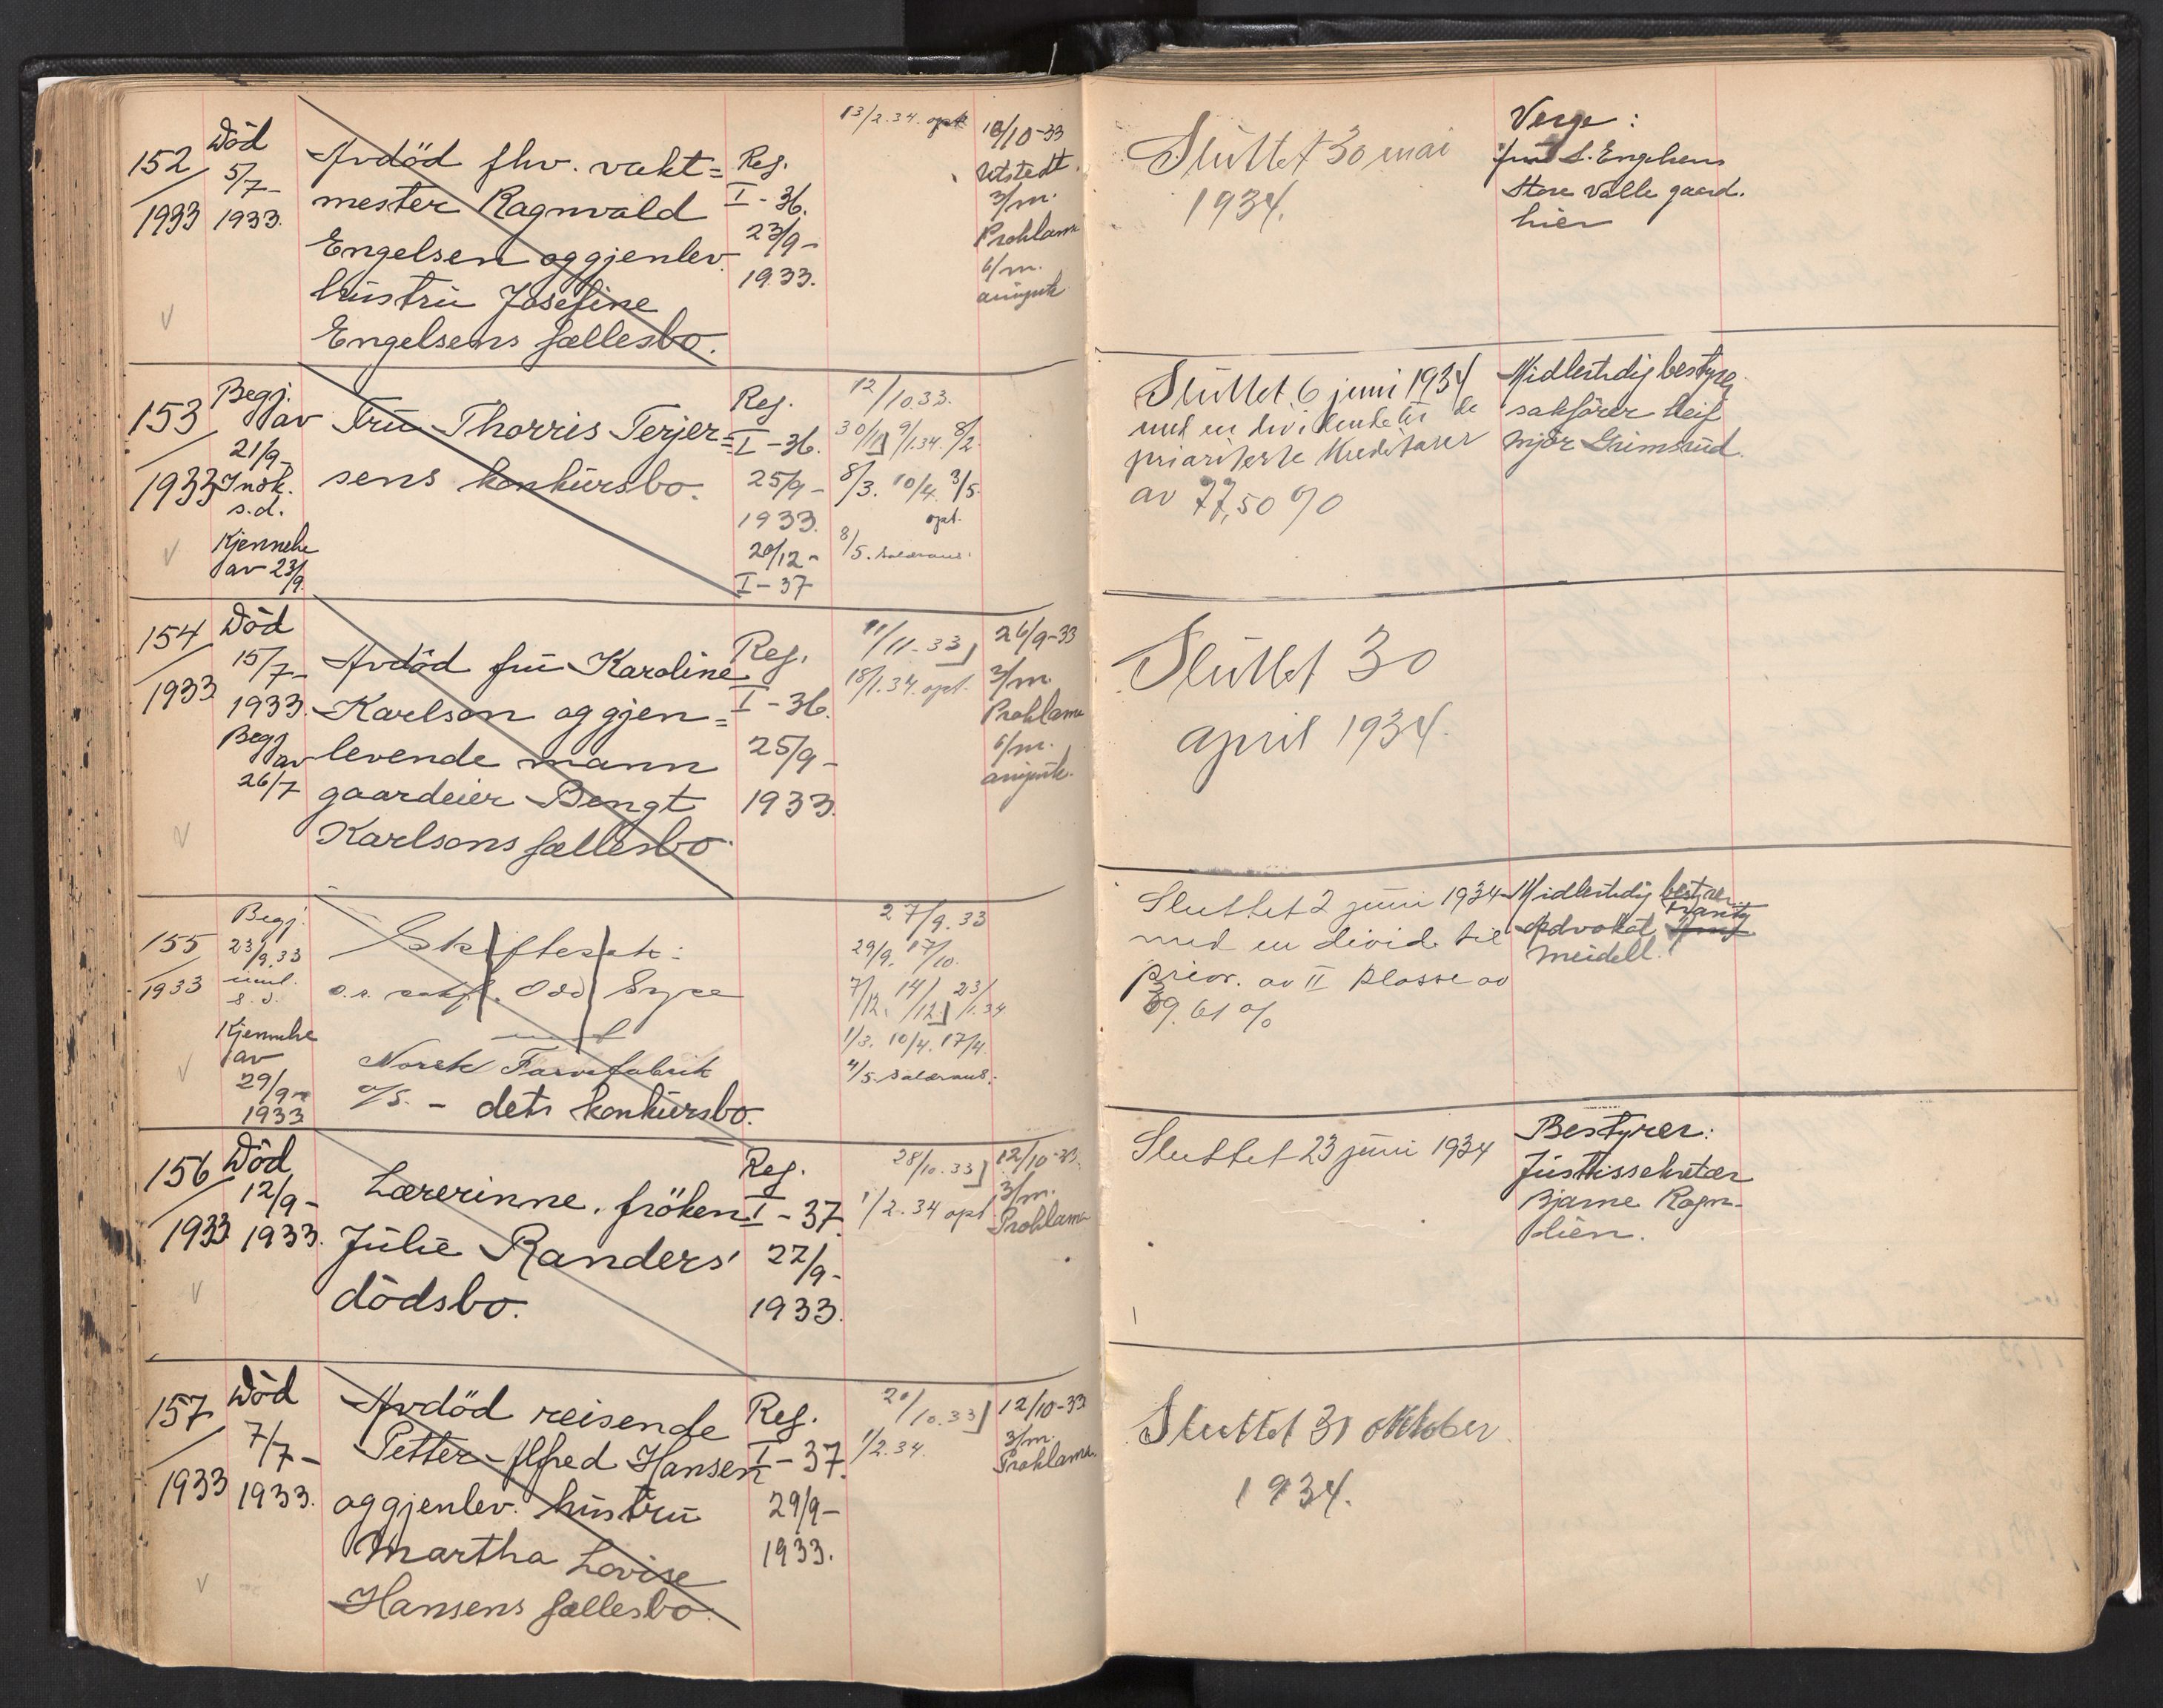 152
1933
Död
5/7-
1933.
Avdöd fhv. vakt=
mester Ragnvald
Engelsen og gjenlev.
hustru Josefine
Engelsens fællesbo.
Reg.
I - 36.
23/9-
1933.
13/2.34. opt
13/10-33
Utstedt
3/m.
Proklama
6/m.
Sluttet 30 mai
1934.
Verge:
fru S. Engelsen
Store Valle gaard.
hier
153
1933
Begj.
av
21/9-
Innk.
s.d.
Kjennelse
av 23/9.
Fru Thorris Terjer=
sens konkursbo.
Reg.
I - 36.
25/9-
1933.
20/12-
I - 37
12/10.33.
30/11] 9/1.34. 8/2.
8/3. 10/4. 3/5.
opt.
8/5.
Sluttet 6 juni 1934
med en dividende til de
prioriterte kreditorer
av 77,50 %
Midlertidig bestyrer
sakfører Leif
Mjör Grimsrud.
154
1933
Död
15/7-
1933.
Begj.
av
26/7
Avdöd fru Karoline
Karlson og gjen=
levende mann
gaardeier Bengt
Karlsons fællesbo.
Reg.
I - 36.
25/9-
1933.
11/11-33]
18/1.34. opt.
26/9-33
3/m.
Proklama
6/m.
Sluttet 30
april 1934.
155
1933
Begj.
23/9.33
s.d.
Kjennelse
av
29/9-
1933
Skiftesak:
o.r. sakf. Odd
mot
Norsk Farvefabrik
A/S. - dets konkursbo.
27/9.33
29/9. 17/10.
7/12. 14/12.] 23/1.34
1/3. 10/4. 17/4.
4/5.
Sluttet 2 juni 1934
med en divid. til
prior. av II klasse av
39.61 %
Midlertidig bestyrer
Advokat Frantz
Meidell.
156
1933
Död
12/9-
1933.
Lærerinne, fröken
Julie Randers'
dödsbo.
Reg.
I - 37.
27/9-
1933.
28/10.33]
1/2.34 opt
12/10-33.
3/m.
Proklama
Sluttet 23 juni 1934
Bestyrer:
Justissekretær
Bjarne Rogn-
lien.
157
1933
Död
7/7-
1933.
Avdöd reisende
Petter Alfred Hansen
og gjenlev. hustru
Martha Lovise
Hansens fællesbo.
Reg.
I - 37.
29/9-
1933.
20/10.33]
1/2.34.
12/10-33
3/m.
Proklama.
Sluttet 31 oktober
1934.